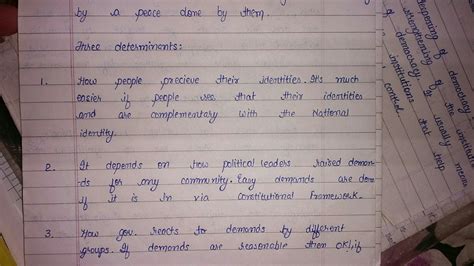 by a peace done by them.
Three determinants:
1. How people precieve their identities. It's much
easier if people see that their identities
and are complementary with the National
identity.
2. It depends on how political leaders raised deman-
ds for any community. Easy demands are done
if it is in via constitutional Framework.
3. How gov. reacts to demands by different
groups. If demands are reasonable then OK!, if
deepening of democracy
strengthening of the institutions
of democracy. It usually
institutions that help
control